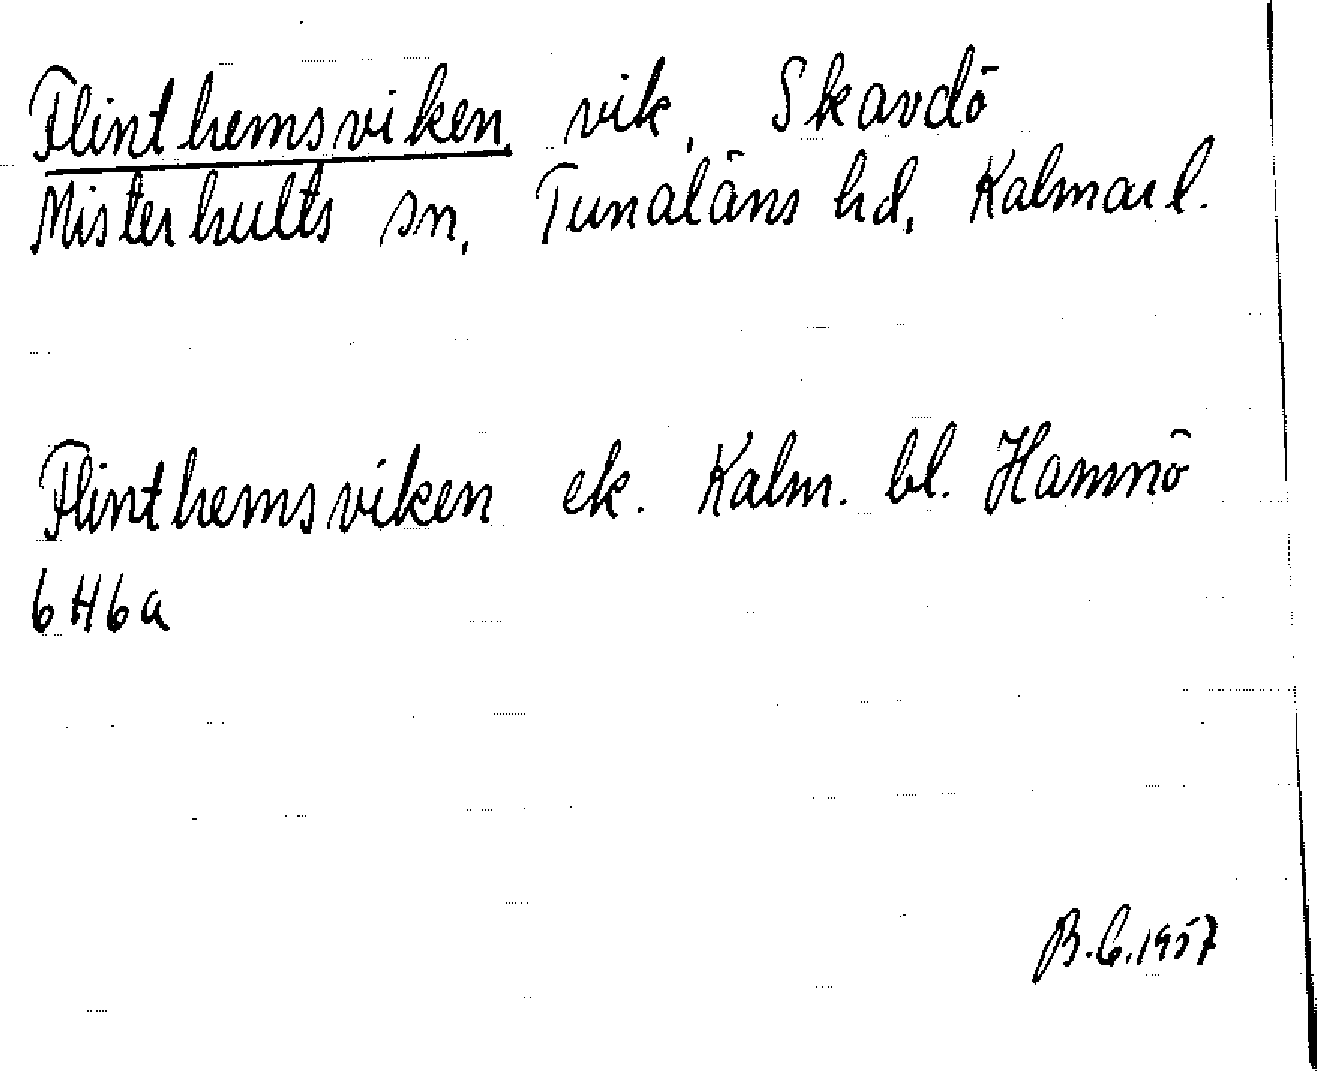 Flinthemsviken, vik, Skavdö
Misterhults sn, Tunaläns hd, Kalmar l.
Flinthemsviken ek. Kalm. bl. Hamnö
6H6a
B.G.1957